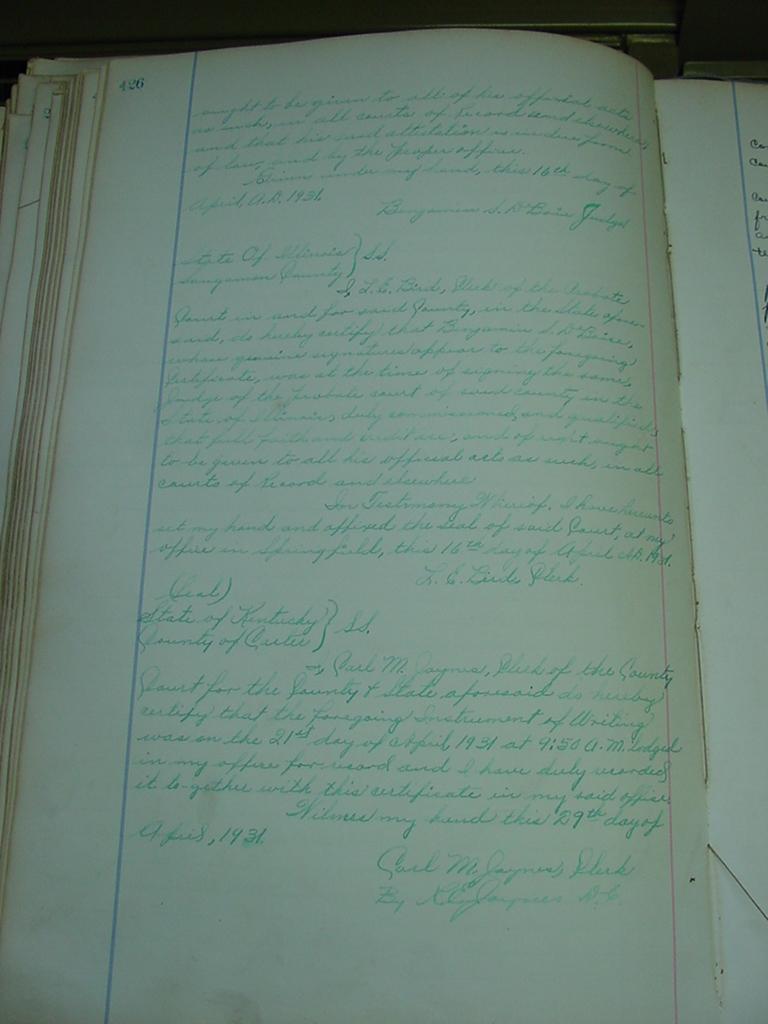 426
ought to be given to all of his official acts
as such, in all courts of Record and elsewhere,
and that his said attestation is in due form
of law, and by the proper officer.
Given under my hand, this 16th day of
April, A.D. 1931.
Benjamin S. DeBoice Judge
State Of Illinois } SS.
Sangamon County
I, L. E. Bird, Clerk of the Probate
Court in and for said County, in the State afore-
said, do hereby certify that Benjamin S. DeBoice,
whose genuine signatures appear to the foregoing
Certificate, was at the time of signing the same,
Judge of the Probate court of said county in the
State of Illinois, duly commissioned, and qualified;
that full faith and credit are, and of right ought
to be given to all his official acts as such, in all
courts of Record and elsewhere
In Testimony Whereof, I have hereunto
set my hand and affixed the seal of said Court, at my
office in Springfield, this 16th day of April A.D. 1931.
L. E. Bird Clerk.
(Seal)
State of Kentucky } SS.
County of Carter
I, Carl M. Jaynes, Clerk of the County
Court for the County & State aforesaid do hereby
certify that the foregoing Instrument of Writing
was on the 21st day of April 1931 at 9:50 A.M. lodged
in my office for record and I have duly recorded
it to-gether with this certificate in my said office
Witness my hand this 29th day of
April, 1931.
Carl M. Jaynes, Clerk
By Jaynes D.C.